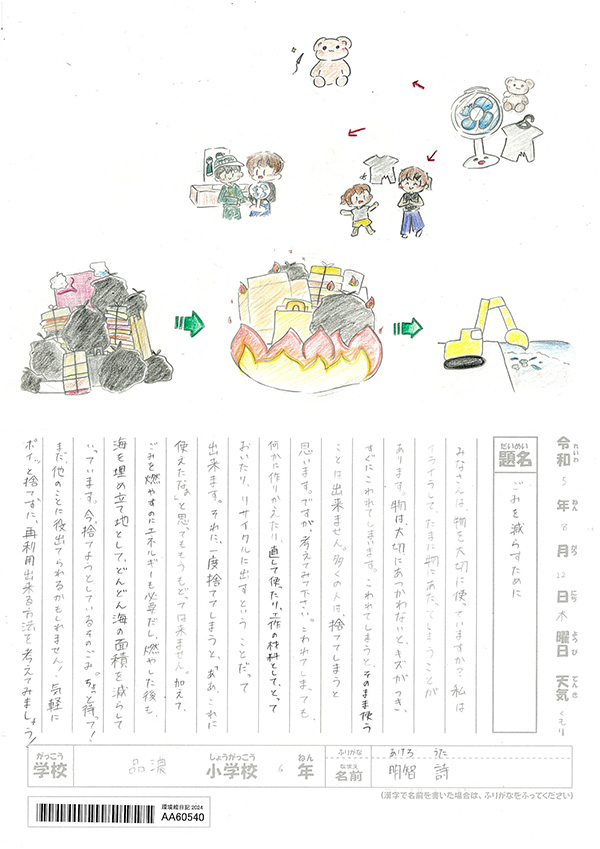 令和5年8月12日木曜日 天気くもり
題名 ごみを減らすために
みなさんは、物を大切に使っていますか？私は
イライラして、たまに物にあたってしまうことが
あります。物は、大切にあつかわないと、キズがつき、
すぐにこわれてしまいます。こわれてしまうと、そのまま使う
ことは出来ません。多くの人は、捨ててしまうと
思います。ですが、考えてみて下さい。こわれてしまっても、
何かに作りかえたり、直して使ったり、工作の材料として、とって
おいたり、リサイクルに出すということだって
出来ます。それに、一度捨ててしまうと、「ああ、これに
使えたなぁ」と思ってももうもどっては来ません。加えて、
ごみを燃やすのにエネルギーも必要だし、燃やした後も、
海を埋め立て地として、どんどん海の面積を減らして
いっています。今、捨てようとしているそのごみ。ちょっと待って！
まだ、他のことに役出てられるかもしれません！気軽に
ポイッと捨てずに、再利用出来る方法を考えてみましょう！
がっこう 学校 品濃 しょうがっこう 小学校 6 ねん 年
ふりがな あけち うた
なまえ 名前 明智 詩
(漢字で名前を書いた場合は、ふりがなをふってください)
環境絵日記 2024
AA60540